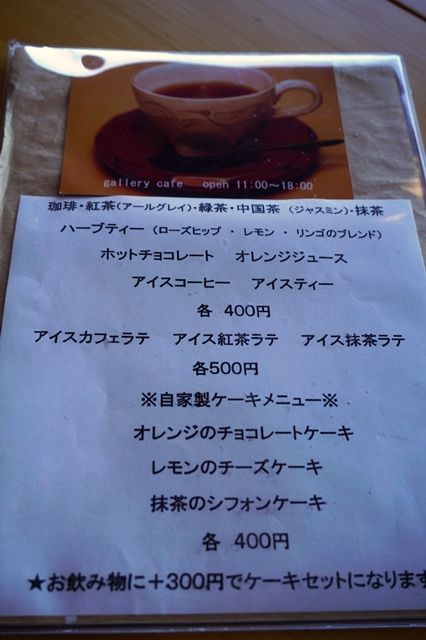 gallery cafe open 11:00〜18:00
珈琲・紅茶(アールグレイ)・緑茶・中国茶 (ジャスミン)・抹茶
ハーブティー (ローズヒップ ・ レモン ・ リンゴのブレンド)
ホットチョコレート オレンジジュース
アイスコーヒー アイスティー
各 400円
アイスカフェラテ アイス紅茶ラテ アイス抹茶ラテ
各500円
※自家製ケーキメニュー※
オレンジのチョコレートケーキ
レモンのチーズケーキ
抹茶のシフォンケーキ
各 400円
★お飲み物に＋300円でケーキセットになります